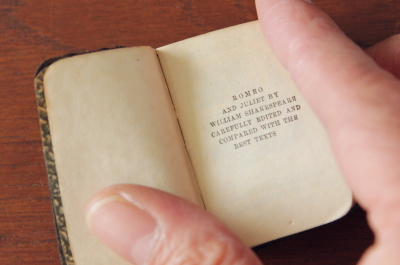 ROMEO
AND JULIET BY
WILLIAM SHAKESPEARE
CAREFULLY EDITED AND
COMPARED WITH THE
BEST TEXTS